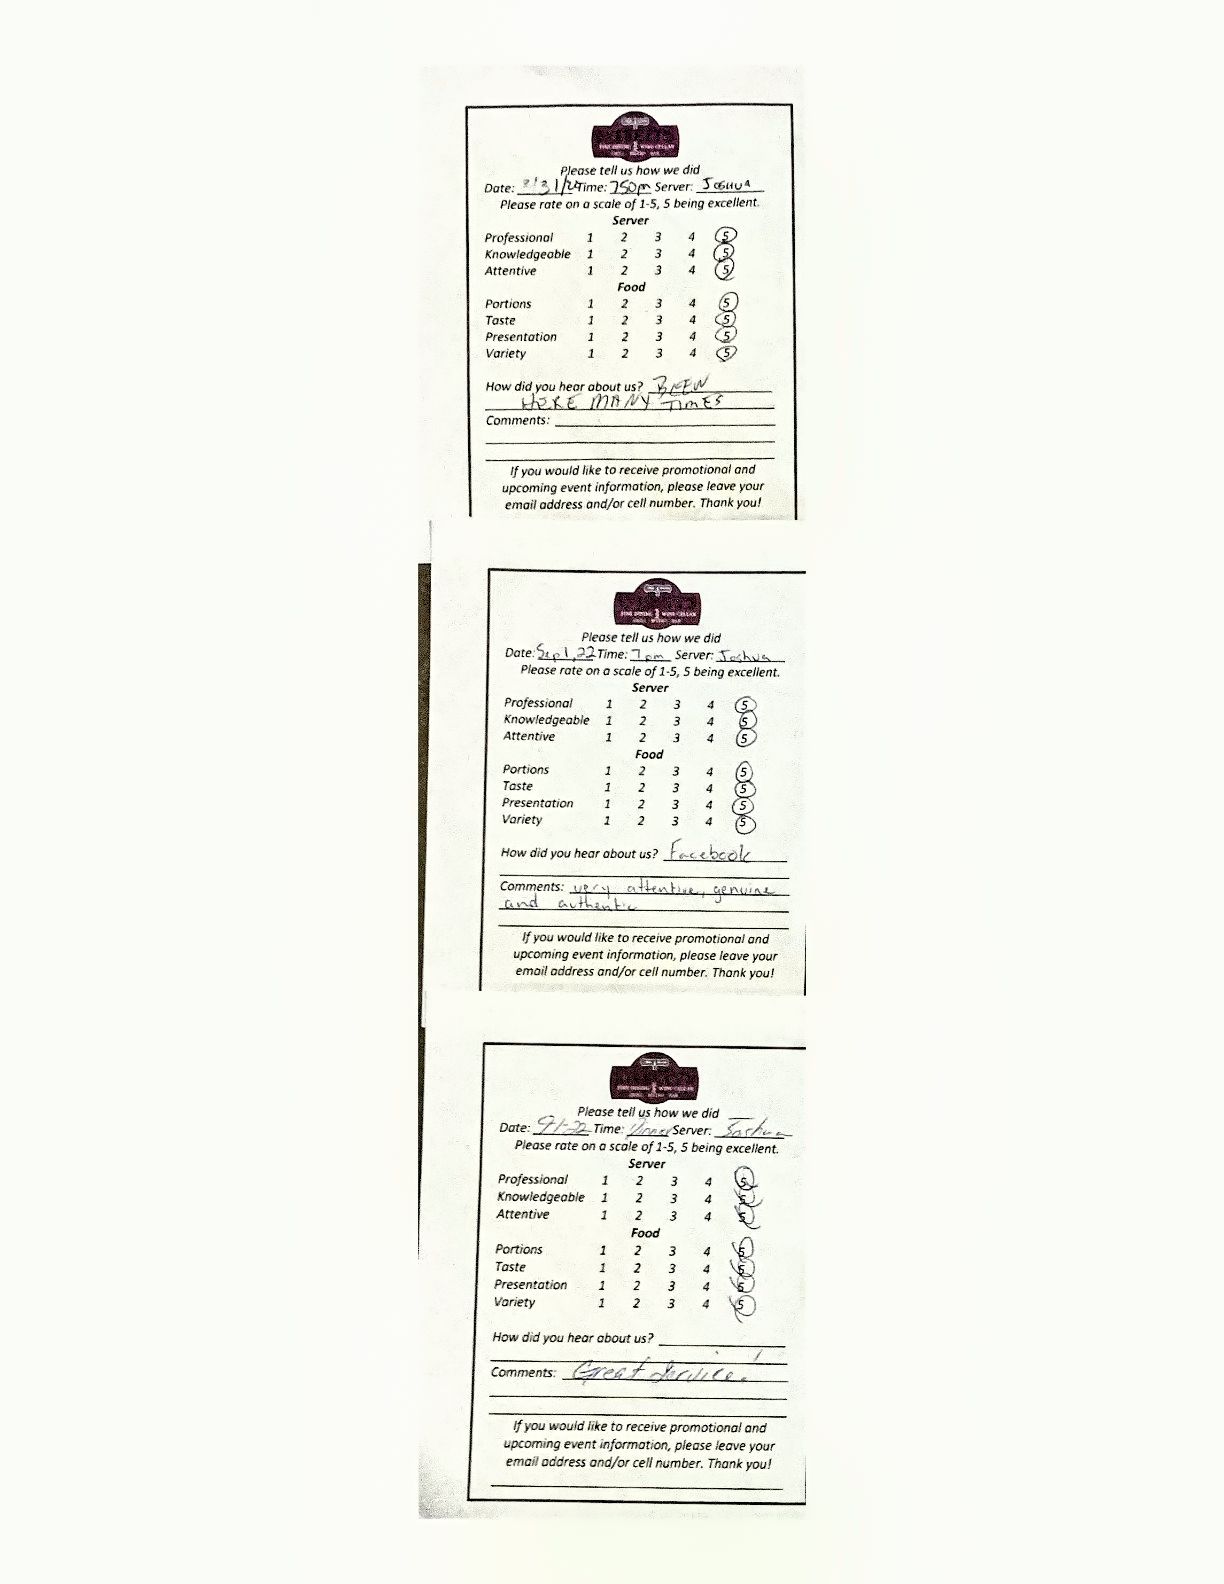 FINE DINING WINE CELLAR
GRILL MUSIC BAR
Please tell us how we did
Date: 8/31/22 Time: 750pm Server: JOSHUA
Please rate on a scale of 1-5, 5 being excellent.
Server
Professional 1 2 3 4 5
Knowledgeable 1 2 3 4 5
Attentive 1 2 3 4 5
Food
Portions 1 2 3 4 5
Taste 1 2 3 4 5
Presentation 1 2 3 4 5
Variety 1 2 3 4 5
How did you hear about us? BEEN
HERE MANY TIMES
Comments:
If you would like to receive promotional and
upcoming event information, please leave your
email address and/or cell number. Thank you!
FINE DINING WINE CELLAR
Please tell us how we did
Date: Sep 1, 22 Time: 7pm Server: Joshua
Please rate on a scale of 1-5, 5 being excellent.
Server
Professional 1 2 3 4 5
Knowledgeable 1 2 3 4 5
Attentive 1 2 3 4 5
Food
Portions 1 2 3 4 5
Taste 1 2 3 4 5
Presentation 1 2 3 4 5
Variety 1 2 3 4 5
How did you hear about us? Facebook
Comments: very attentive, genuine
and authentic
If you would like to receive promotional and
upcoming event information, please leave your
email address and/or cell number. Thank you!
FINE DINING WINE CELLAR
Please tell us how we did
Date: 9-1-22 Time: Dinner Server: Joshua
Please rate on a scale of 1-5, 5 being excellent.
Server
Professional 1 2 3 4 5
Knowledgeable 1 2 3 4 5
Attentive 1 2 3 4 5
Food
Portions 1 2 3 4 5
Taste 1 2 3 4 5
Presentation 1 2 3 4 5
Variety 1 2 3 4 5
How did you hear about us?
Comments: Great Service!
If you would like to receive promotional and
upcoming event information, please leave your
email address and/or cell number. Thank you!